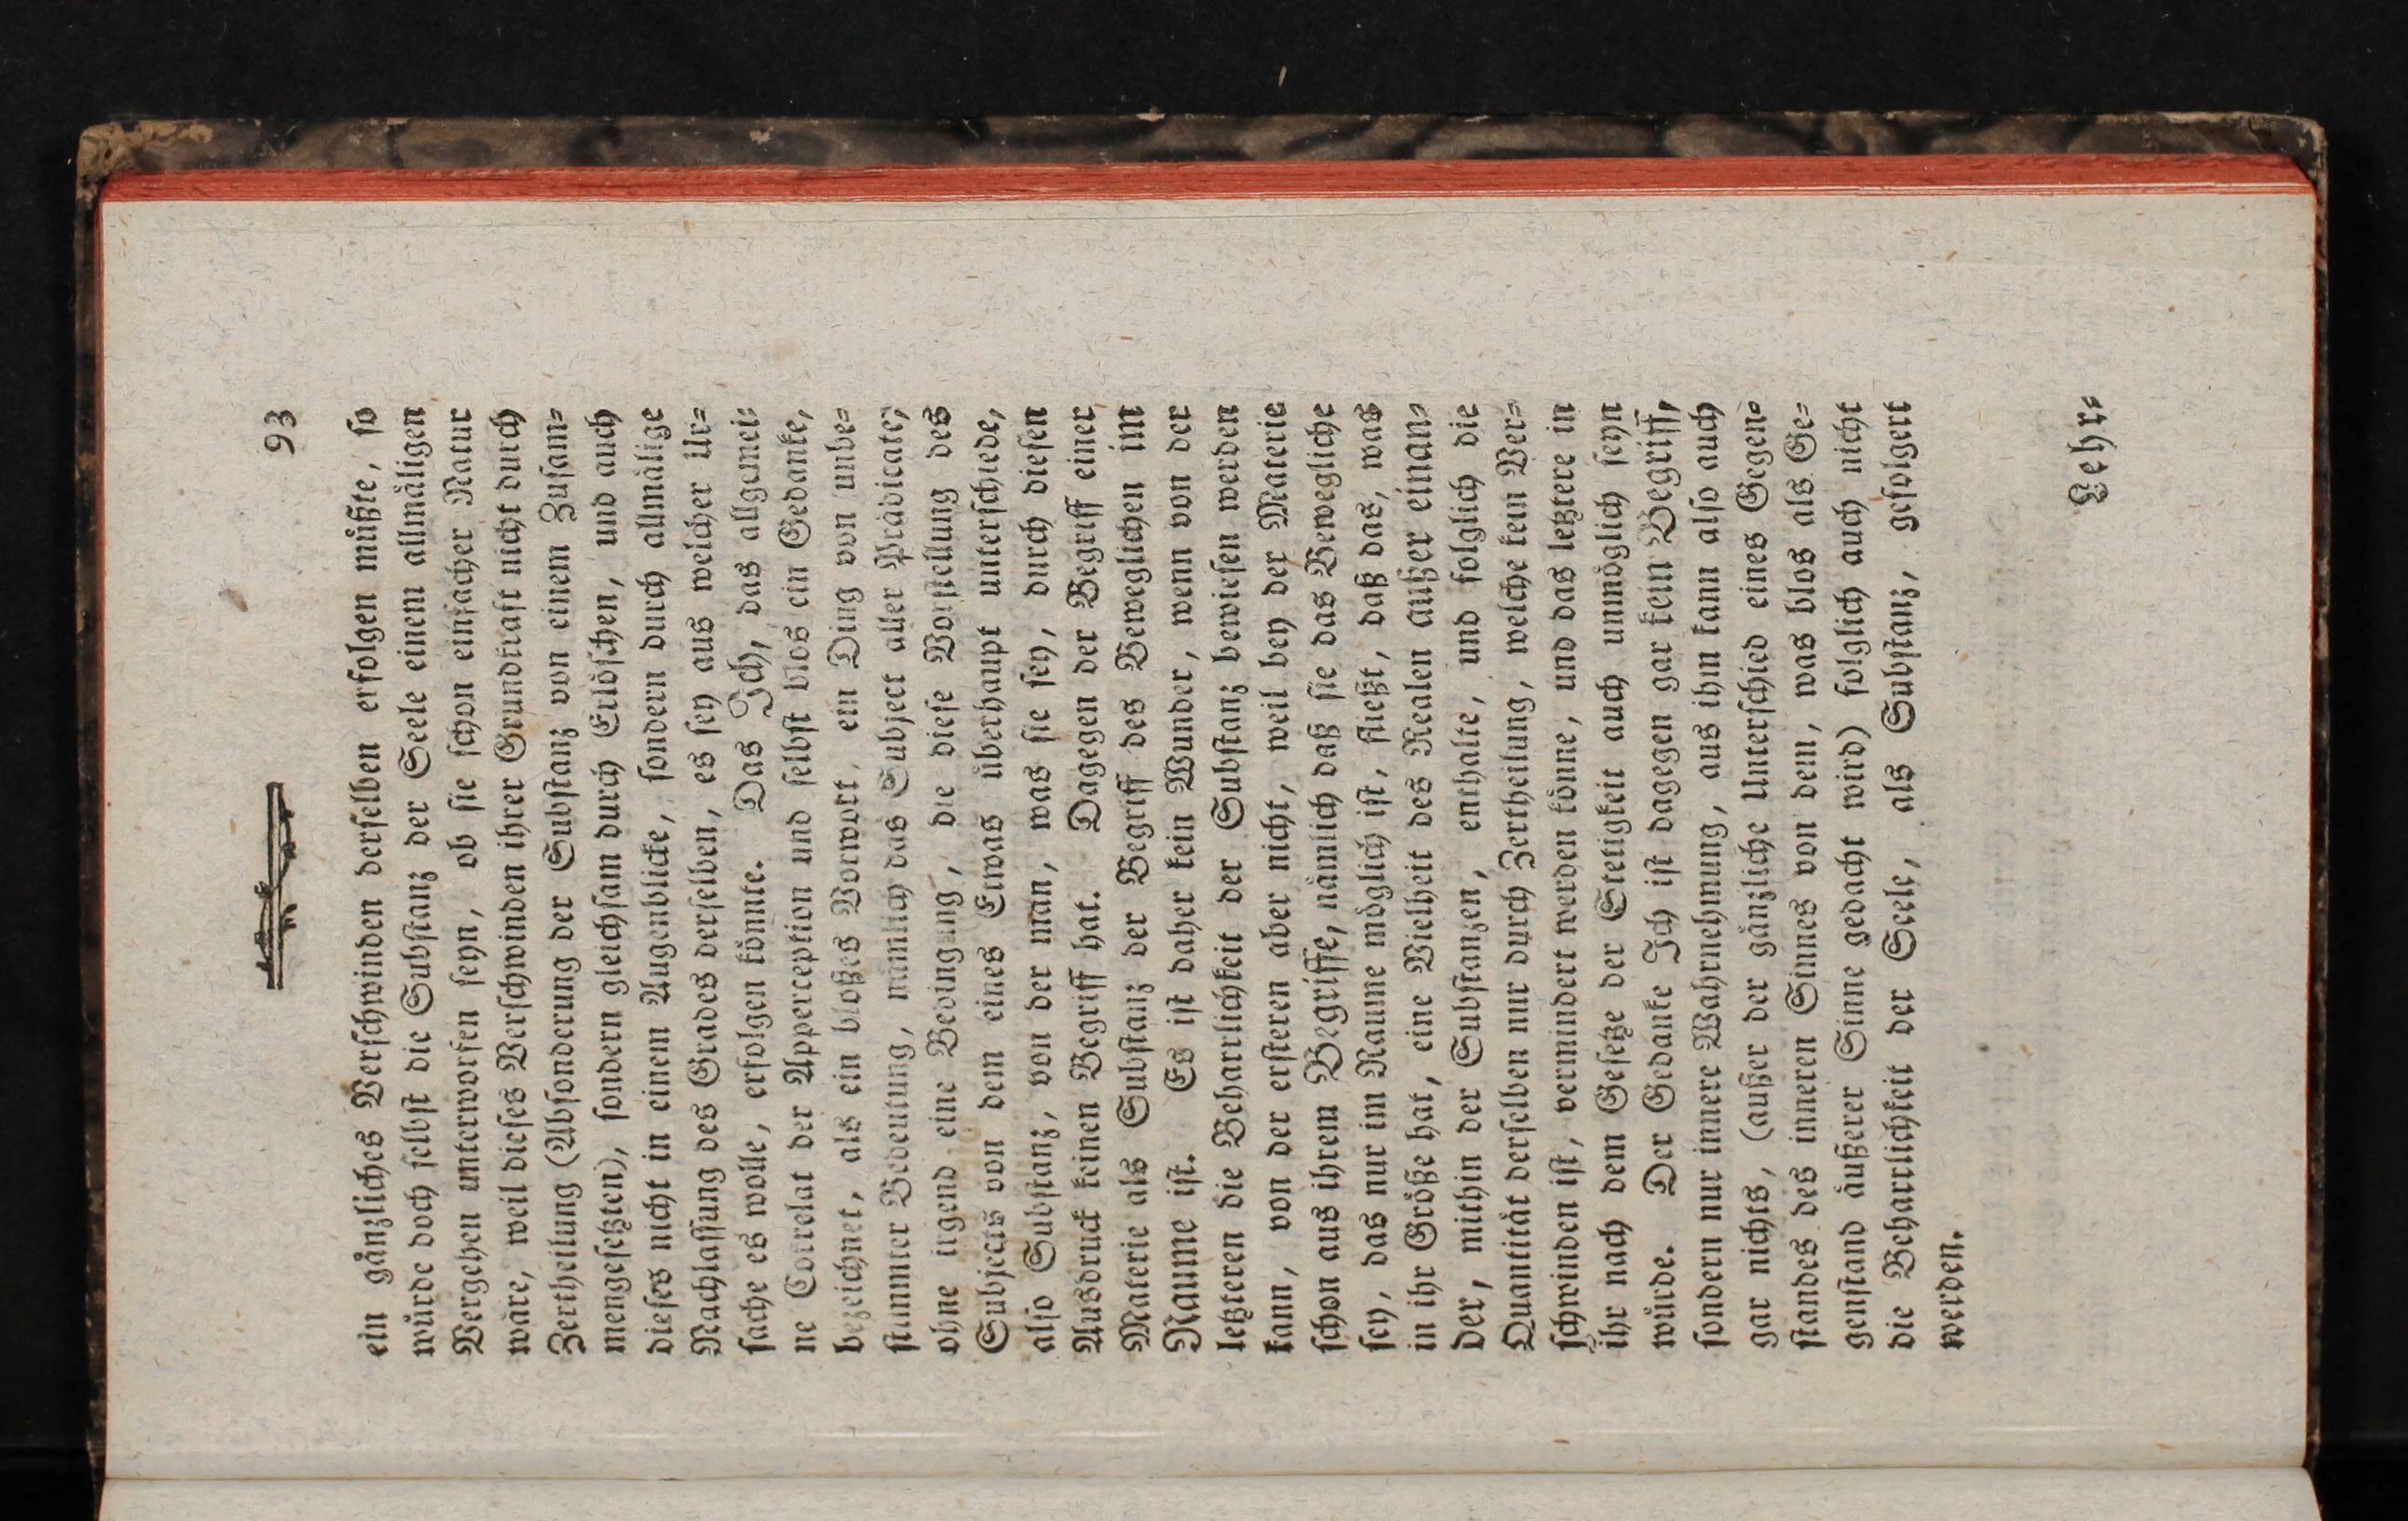 93
ein gänzliches Verſchwinden derſelben erfolgen müßte, ſo
würde doch ſelbſt die Subſtanz der Seele einem allmäligen
Vergehen unterworfen ſeyn, ob ſie ſchon einfacher Natur
wäre, weil dieſes Verſchwinden ihrer Grundkraft nicht durch
Zertheilung (Abſonderung der Subſtanz von einem Zuſam-
mengeſetzten), ſondern gleichſam durch Erlöſchen, und auch
dieſes nicht in einem Augenblicke, ſondern durch allmälige
Nachlaſſung des Grades derſelben, es ſey aus welcher Ur-
ſache es wolle, erfolgen könnte. Das Ich, das allgemei-
ne Correlat der Apperception und ſelbſt blos ein Gedanke,
bezeichnet, als ein bloßes Vorwort, ein Ding von unbe-
ſtimmter Bedeutung, nämlich das Subject aller Prädicate,
ohne irgend eine Bedingung, die dieſe Vorſtellung des
Subjects von dem eines Etwas überhaupt unterſchiede,
alſo Subſtanz, von der man, was ſie ſey, durch dieſen
Ausdruck keinen Begriff hat. Dagegen der Begriff einer
Materie als Subſtanz der Begriff des Beweglichen im
Raume iſt. Es iſt daher kein Wunder, wenn von der
letzteren die Beharrlichkeit der Subſtanz bewieſen werden
kann, von der erſteren aber nicht, weil bey der Materie
ſchon aus ihrem Begriffe, nämlich daß ſie das Bewegliche
ſey, das nur im Raume möglich iſt, fließt, daß das, was
in ihr Größe hat, eine Vielheit des Realen außer einan-
der, mithin der Subſtanzen, enthalte, und folglich die
Quantität derſelben nur durch Zertheilung, welche kein Ver-
ſchwinden iſt, vermindert werden könne, und das letztere in
ihr nach dem Geſetze der Stetigkeit auch unmöglich ſeyn
würde. Der Gedanke Ich iſt dagegen gar kein Begriff,
ſondern nur innere Wahrnehmung, aus ihm kann alſo auch
gar nichts, (außer der gänzliche Unterſchied eines Gegen-
ſtandes des inneren Sinnes von dem, was blos als Ge-
genſtand äußerer Sinne gedacht wird) folglich auch nicht
die Beharrlichkeit der Seele, als Subſtanz, gefolgert
werden.
Lehr-